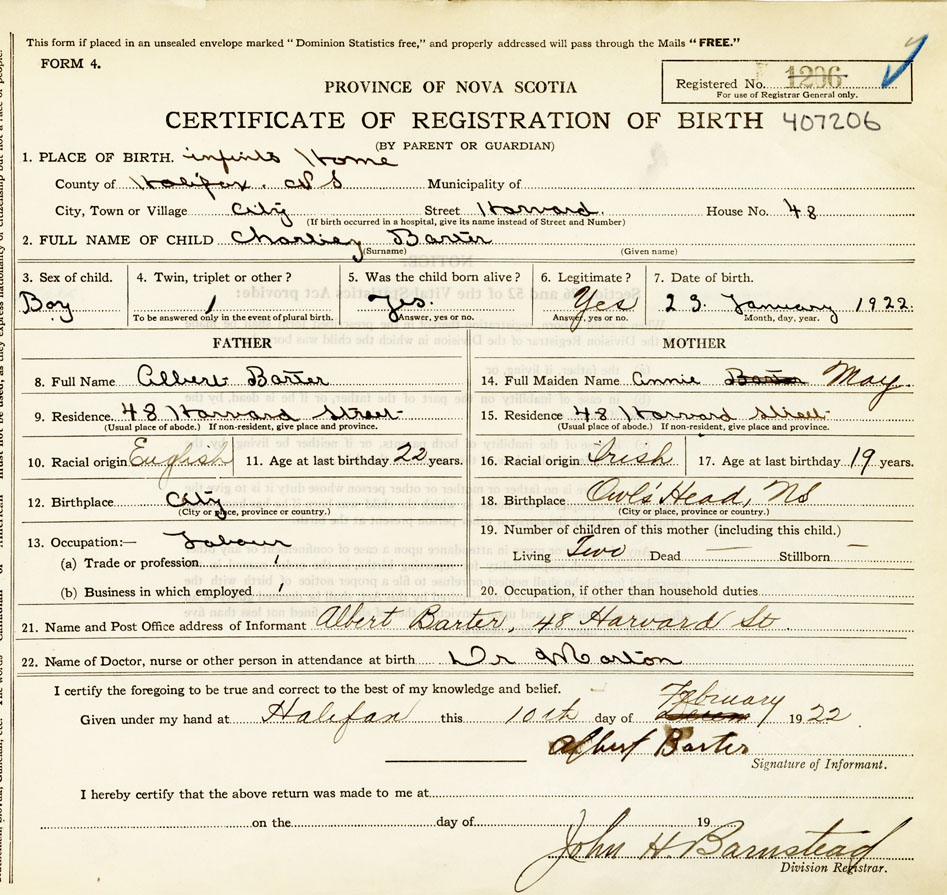 This form if placed in an unsealed envelope marked "Dominion Statistics free," and properly addressed will pass through the Mails "FREE."
FORM 4.
Registered No. 1206
For use of Registrar General only.
PROVINCE OF NOVA SCOTIA
CERTIFICATE OF REGISTRATION OF BIRTH 407206
(BY PARENT OR GUARDIAN)
1. PLACE OF BIRTH. infints Home
County of Halifax. NS Municipality of
City, Town or Village City Street Harvard. House No. 48
(If birth occurred in a hospital, give its name instead of Street and Number)
2. FULL NAME OF CHILD Barter
(Surname) (Given name)
3. Sex of child. 4. Twin, triplet or other? 5. Was the child born alive? 6. Legitimate? 7. Date of birth.
Boy Yes. Yes 23. January 1922
To be answered only in the event of plural birth. Answer, yes or no. Answer, yes or no. Month, day, year.
FATHER MOTHER
8. Full Name Albert Barter 14. Full Maiden Name Annie Barter May.
9. Residence 48 Harvard Street 15. Residence 48 Harvard Street
(Usual place of abode.) If non-resident, give place and province. (Usual place of abode.) If non-resident, give place and province.
10. Racial origin English 11. Age at last birthday 22 years. 16. Racial origin Irish 17. Age at last birthday 19 years.
12. Birthplace City 18. Birthplace Owl's Head, NS
(City or place, province or country.) (City or place, province or country.)
13. Occupation:— Labour 19. Number of children of this mother (including this child.)
(a) Trade or profession Living Two Dead — Stillborn —
(b) Business in which employed 20. Occupation, if other than household duties
21. Name and Post Office address of Informant Albert Barter, 48 Harvard St.
22. Name of Doctor, nurse or other person in attendance at birth Dr Marton
I certify the foregoing to be true and correct to the best of my knowledge and belief.
Given under my hand at Halifax this 10th day of February 1922
Albert Barter
Signature of Informant.
I hereby certify that the above return was made to me at
on the day of 19
John H. Barnstead
Division Registrar.